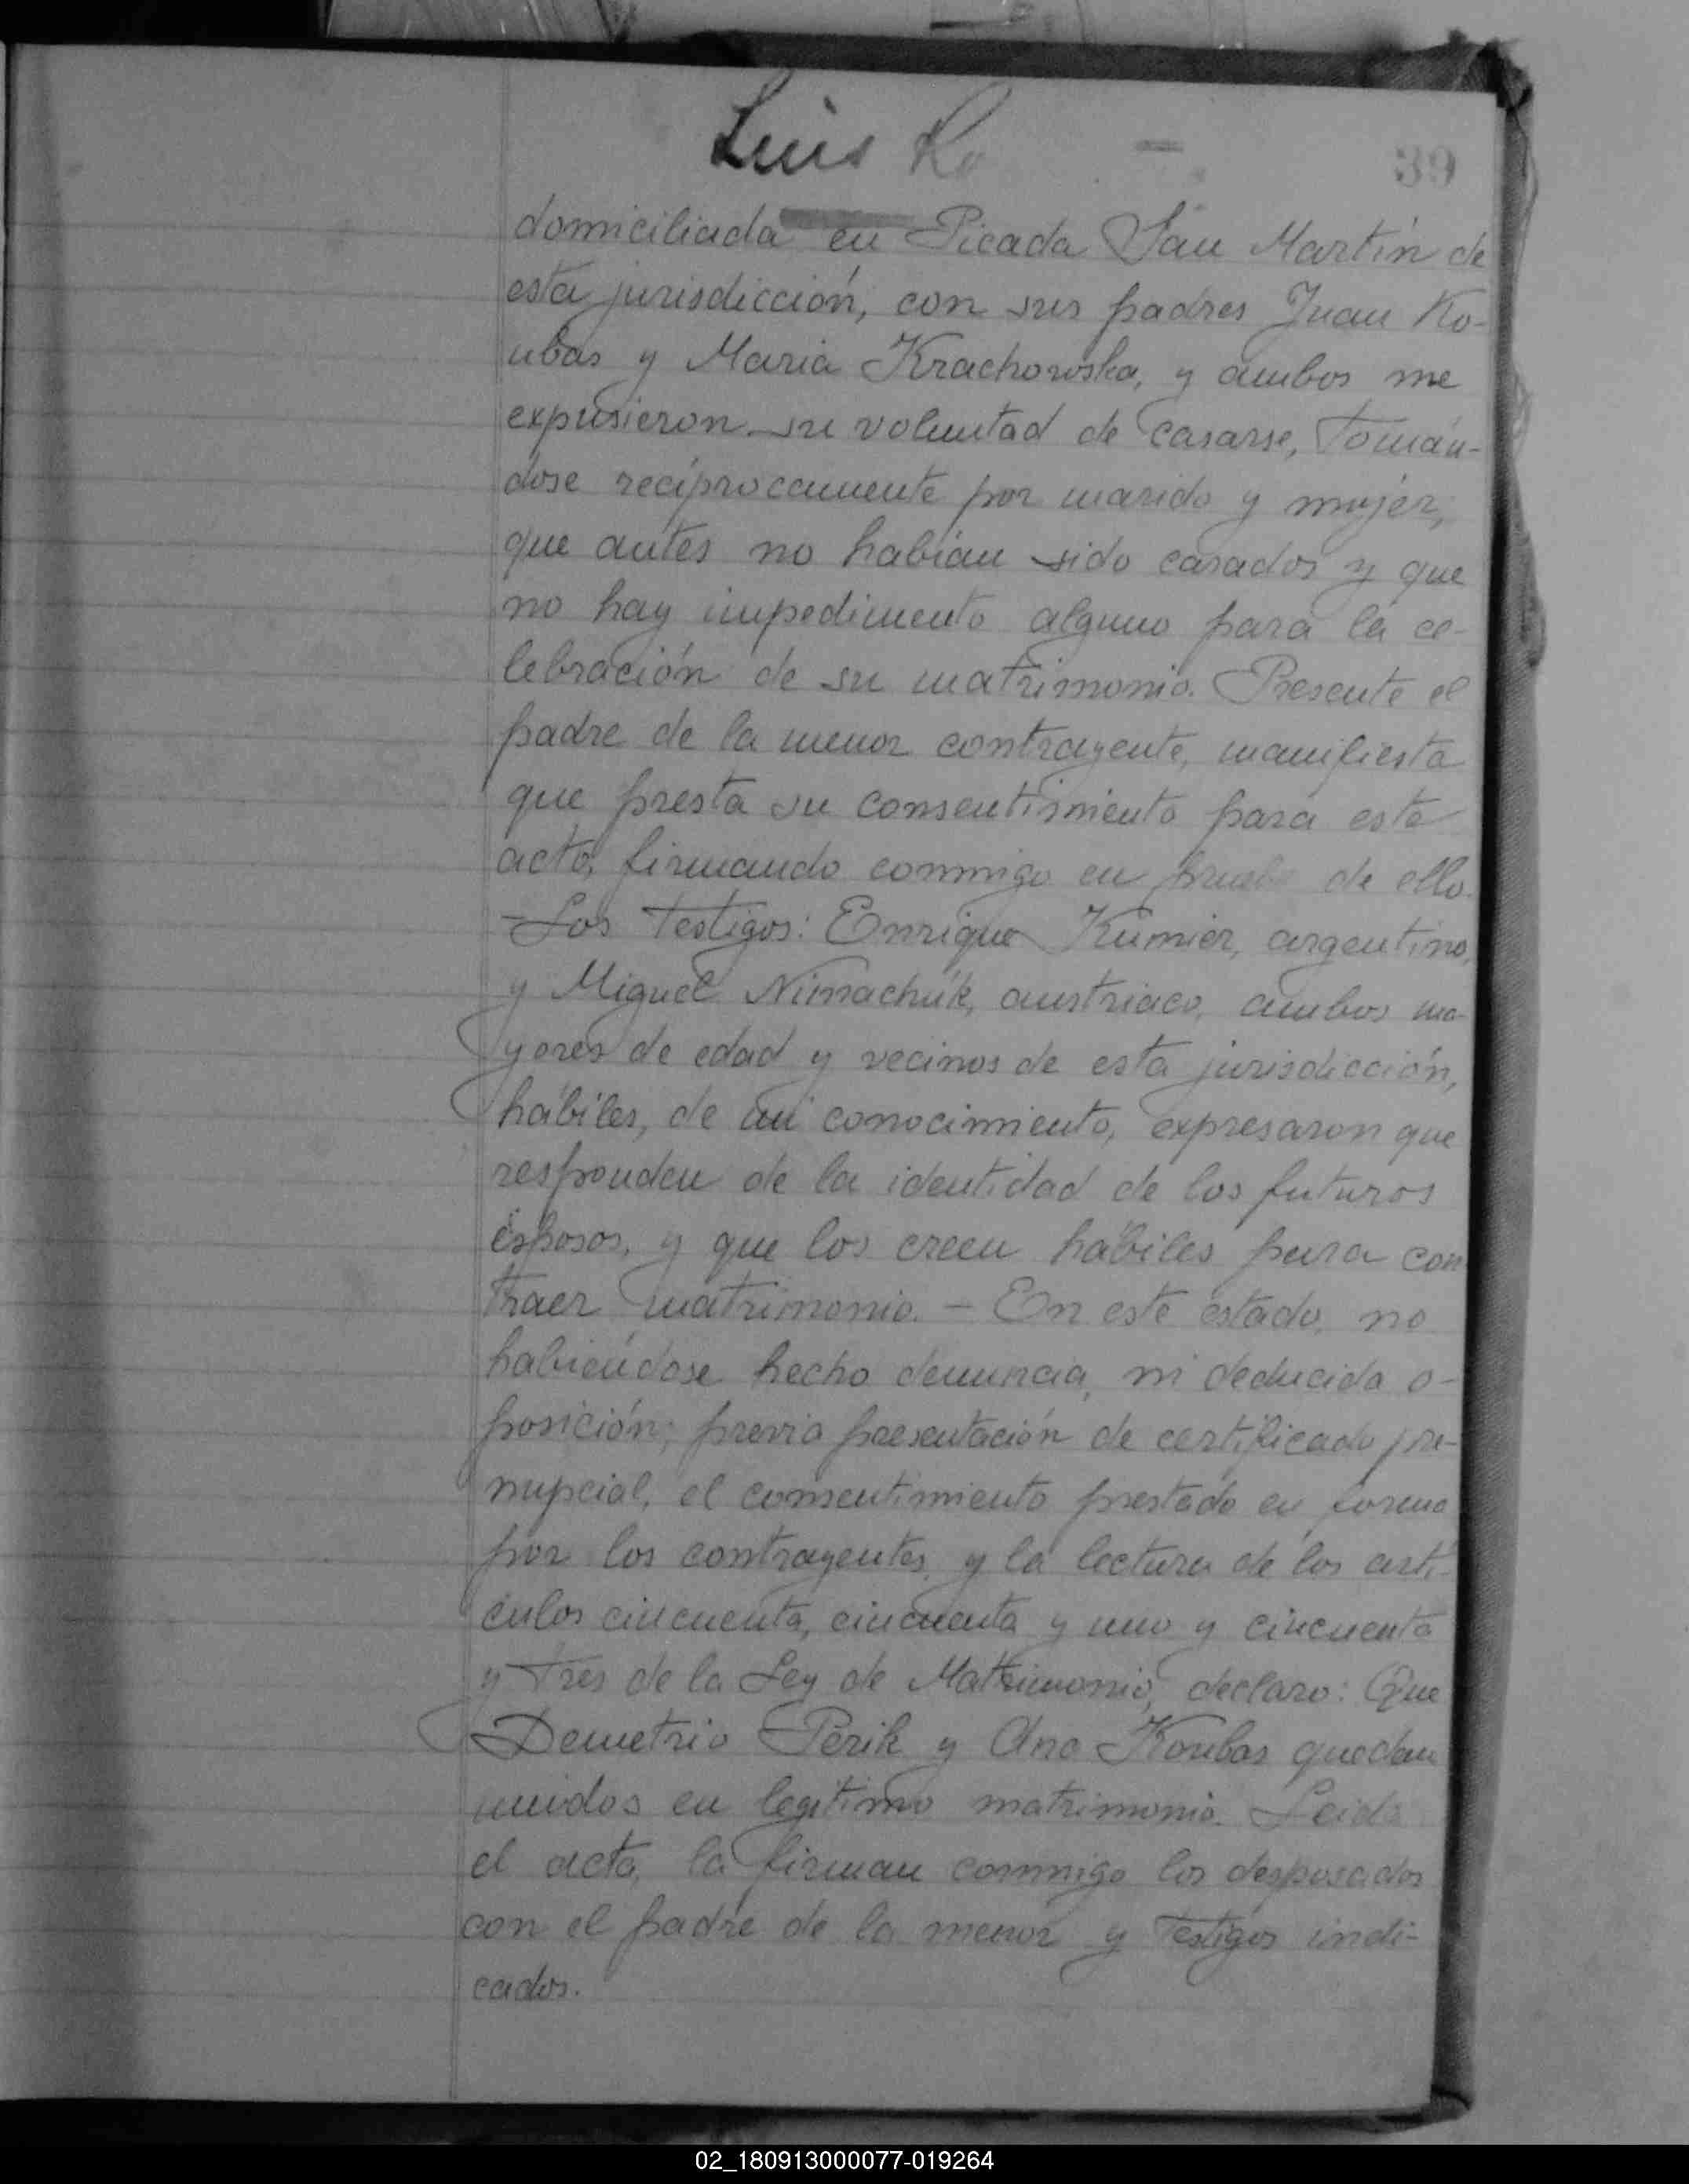 Luis Ko
39
domiciliada en Picada San Martín de
esta jurisdicción, con sus padres Juan Ko-
ubas y Maria Krachowska, y ambos me
expusieron su voluntad de casarse, tomán-
dose recíprocamente por marido y mujer,
que antes no habían sido casados y que
no hay impedimento alguno para la ce-
lebración de su matrimonio. Presente el
padre de la menor contrayente, manifiesta
que presta su consentimiento para este
acto, firmando conmigo en prueba de ello.
- Los testigos: Enrique Kumier, argentino,
y Miguel Nimachuk, austriaco, ambos ma-
yores de edad y vecinos de esta jurisdicción,
hábiles, de mi conocimiento, expresaron que
responden de la identidad de los futuros
esposos, y que los creen hábiles para con
traer matrimonio. - En este estado, no
habiéndose hecho denuncia, ni deducida o-
posición; previa presentación de certificado pre-
nupcial, el consentimiento prestado en forma
por los contrayentes, y la lectura de los artí-
culos cincuenta, cincuenta y uno y cincuenta
y tres de la Ley de Matrimonio, declaro: Que
Demetrio Perik y Ana Koubas quedan
unidos en legítimo matrimonio. Leida
el acta, la firman conmigo los desposados
con el padre de la menor y testigos indi-
cados.
02_180913000077-019264